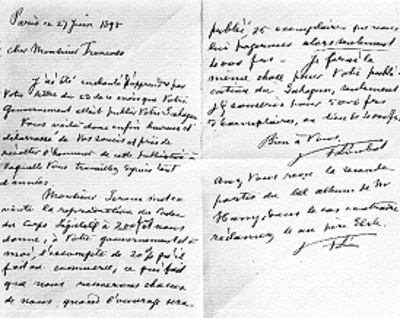 Paris ce 27 Juin 1898
cher Monsieur Troncoso
J'ai été enchanté d'apprendre par
Votre lettre du 23 de ce mois que Votre
Gouvernement allait publier Votre Sahagun
Vous voilà donc enfin heureux et
débarrassé de Vos soucis et près de
récolter l'honneur de cette publication à
laquelle Vous travaillez depuis tant
d'années.
Monsieur met en
vente la reproduction du Codex
du Corps Législatif à 200 f et nous
donne, à Votre gouvernement et à
moi, l'escompte de 20 % qu'il
fait au commerce, ce qui fait
que nous resterons chacun
de nous quand l'ouvrage sera
publié 25 exemplaires que nous
lui payerons alors seulement
4000 frs - Je ferai la
même chose pour Votre publi-
cation du Sahagun, seulement
j'y souscrirai pour 5000 frs
exemplaires, au lieu de
Bien à Vous.
Avez Vous reçu la seconde
partie du bel album de Mr
Hamy, dans le cas contraire
réclamez le au père